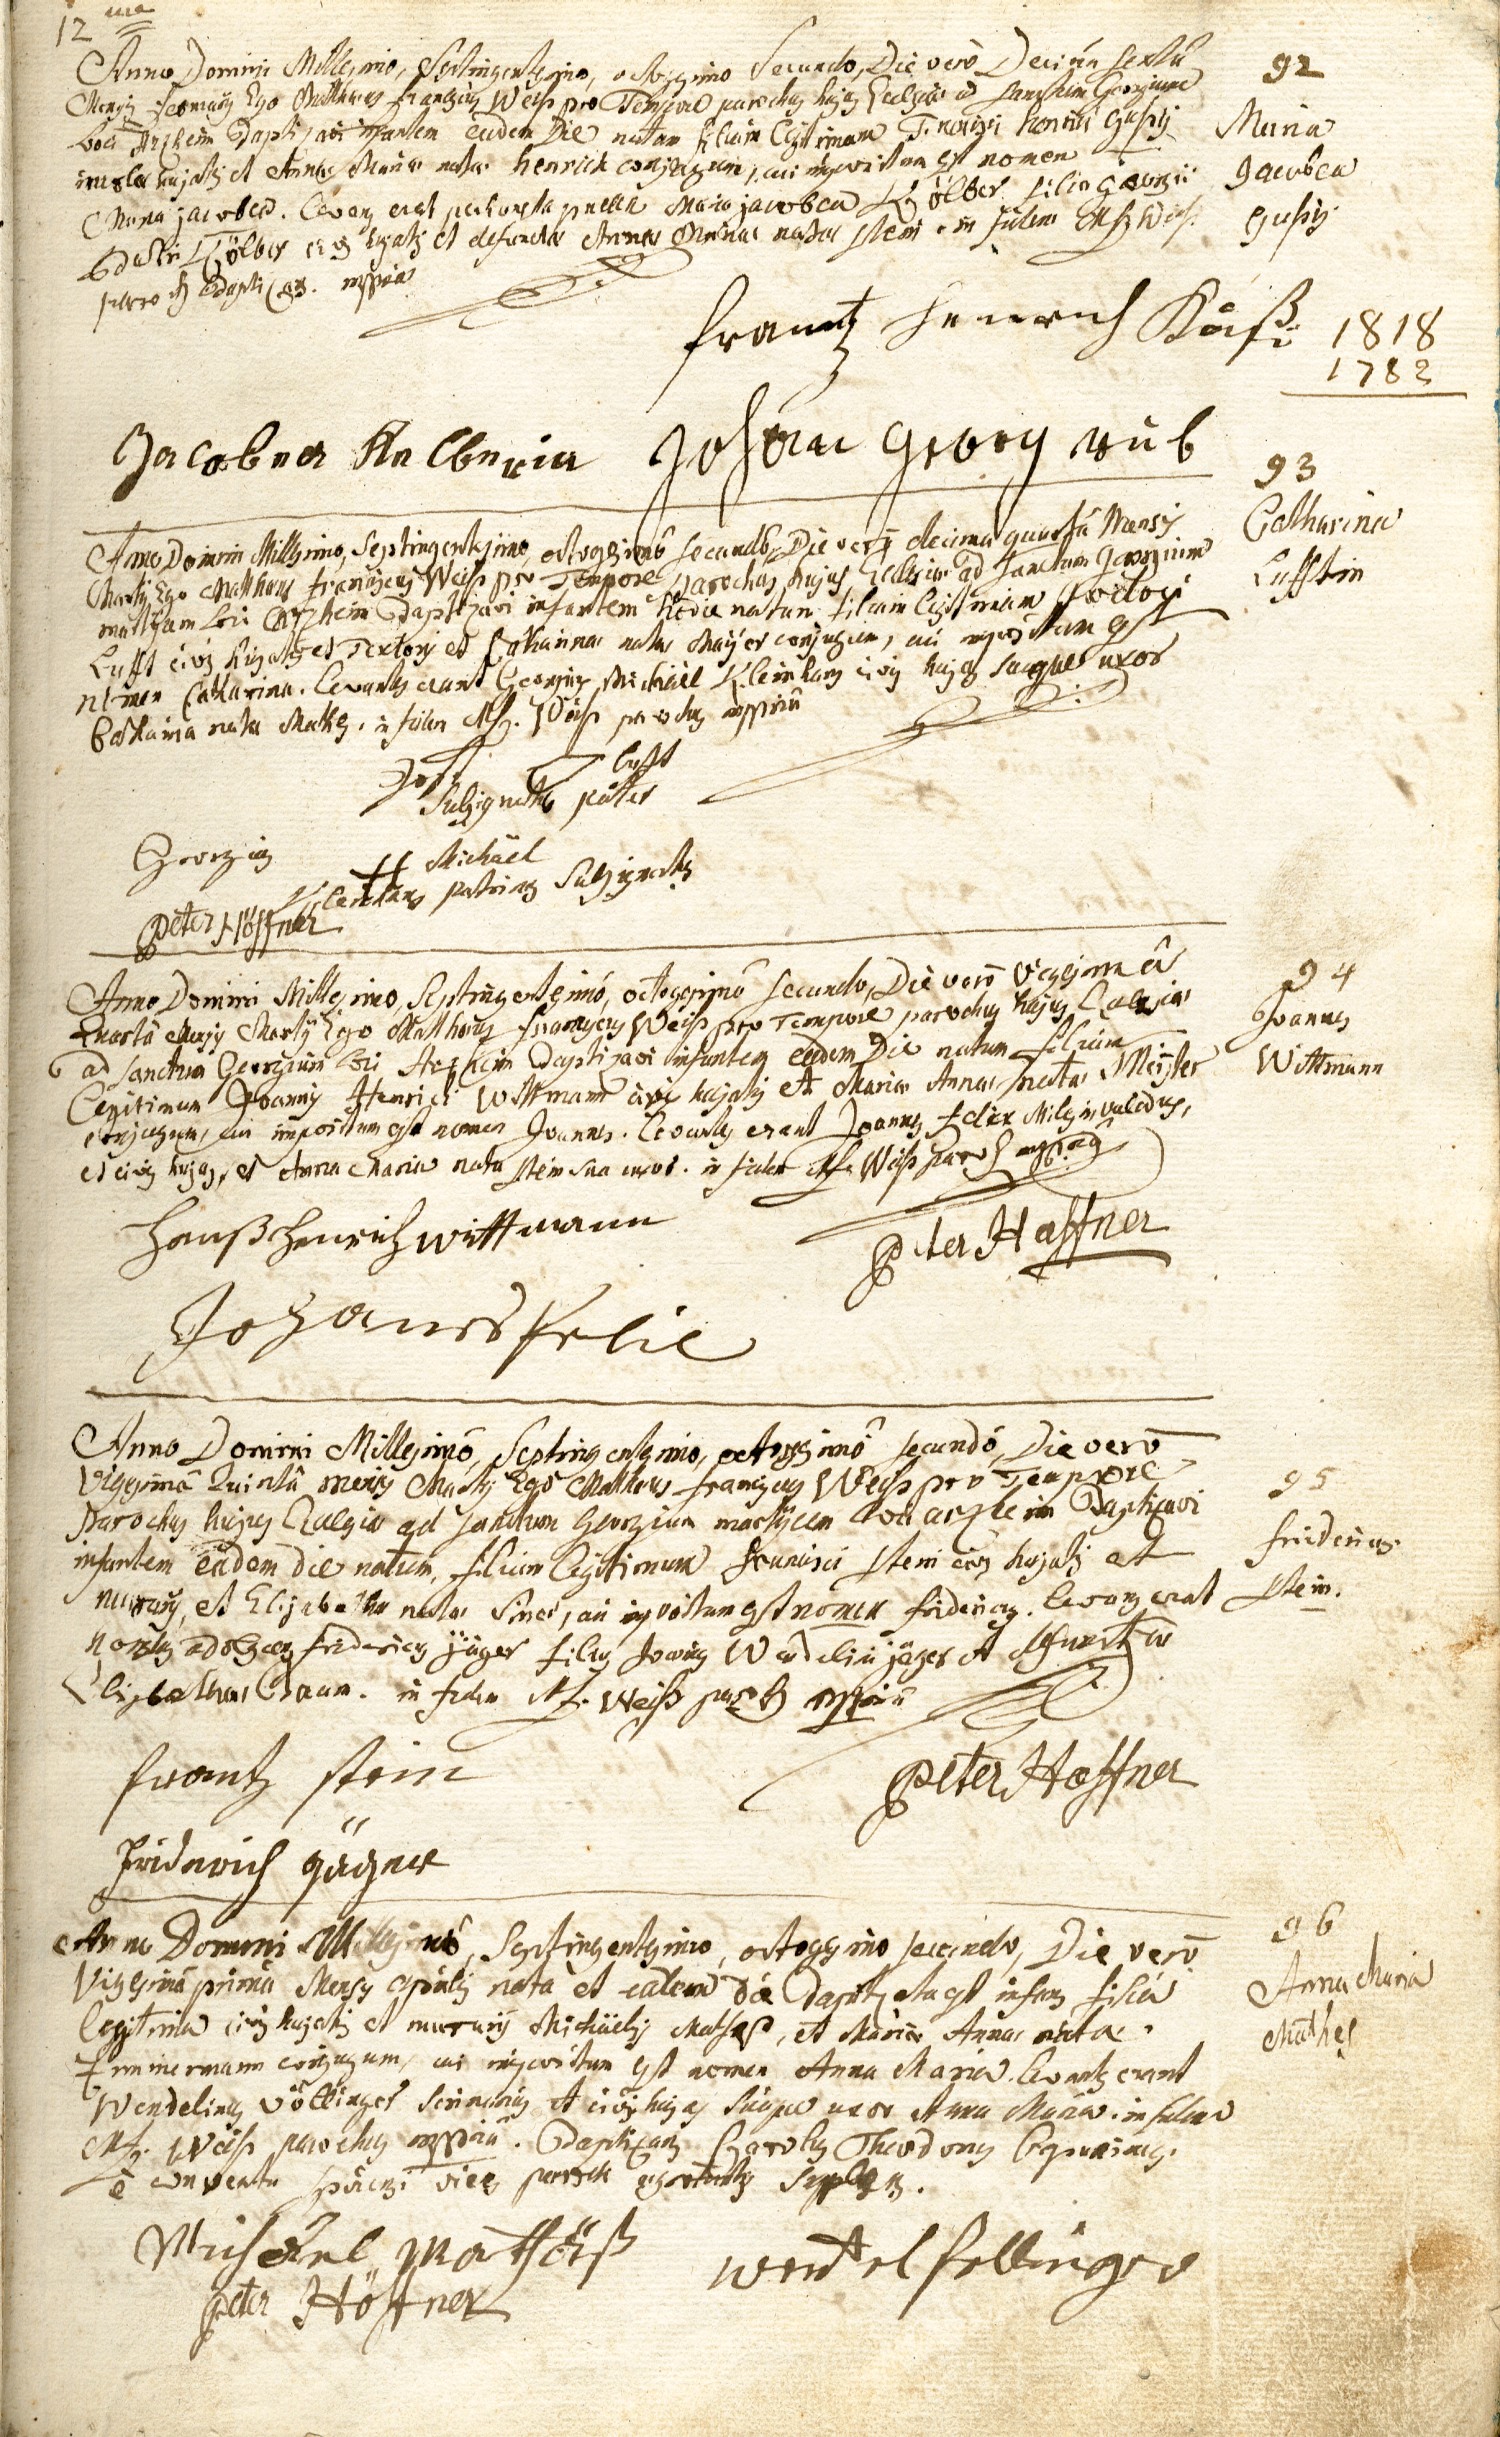 12 ma
Anno Domini Millesimo, Septingentesimo, octogesimo Secundo, Die verò Decimâ sextâ
92
Mensis Ego Matthæus Franciscus Weiß pro Tempore parochus hujus Ecclesiæ ad Sanctum Georgium
loci Arzheim Baptizavi infantem eâdem Die natam filiam legitimam Francisci Henrici
Maria
et Annæ Mariæ natæ Henrich conjugum, cui impositum est nomen
Jacobea
Maria Jacobea. Levans erat puella Maria Jacobea Kölber filia Georgii
Kölber civis hujatis et defunctæ Annæ Mariæ natæ Stein. in fidem Mf. Weiß.
parochus mppriâ
frantz Henrich
1818
1782
Jacobea Johan Georg
93
Anno Domini Millesimo, Septingentesimo, octogesimo Secundo, Die verò decima quarta Mensis
Catharina
Martij Ego Matthæus Franciscus Weiß pro Tempore parochus hujus Ecclesiæ ad Sanctum Georgium
Lufftin
martyrem loci Arzheim Baptizavi infantem hodie natam filiam legitimam Jodoci
Lufft civis hujatis et Textoris et Catharinæ natæ Mayer conjugum, cui impositum est
nomen Catharina. Levantes erant Georgius Michäel Kleinhans civis hujas suaque uxor
Catharina nata . in fidem Mf. Weiß parochus mppriâ
Jost Lufft
Subsignatus pater
Georgius Michäel
Kleinhans patrinus Subsignatus
peter Höffner
94
Anno Domini Millesimo, Septingentesimo, octogesimo Secundo, Die verò Vigesimâ
Joannes
quartâ Mensis Martij Ego Matthæus Franciscus Weiß pro Tempore parochus hujus Ecclesiæ
ad Sanctum Georgium loci Arzheim Baptizavi infantem eâdem Die natum filium
Wittmann
Legitimum Joannis Henrici Wittmann civis hujatis et Mariæ Annæ natæ Meister
conjugum, cui impositum est nomen Joannes. Levantes erant Joannes Felix Miles invalidus,
et civis hujas, et Anna Maria nata Stein sua uxor. in fidem Mf. Weiß paroch mppriâ
Hanß Henrich Wittmann
peter Haffner
Johanes felic
Anno Domini Millesimô, Septingentesimo, octogesimô secundô, Die verò
95
Vigesimâ Quintâ mensis Martij Ego Matthæus Franciscus Weiß pro Tempore
Parochus hujus Ecclesiæ ad Sanctum Georgium martyrem loci arzheim Baptizavi
fridericus
infantem eâdem die natum, filium legitimum Francisci Stein civis hujatis et
Stein.
murarij, et Elisabethæ natæ , cui impositum est nomen fridericus. Levans erat
adolescens fridericus jäger filius Joannis Wendelini jäger et defunctæ
Elisabethæ Braun. in fidem Mf. Weiß parochus mppriâ
frantz stein
peter Haffner
fridrich
96
Anno Domini Millesimô, Septingentesimo, octogesimo secundo, Die verò
Vigesimâ primâ Mensis Aprilis nata et eâdem die Baptizata est infans filia
Anna Maria
legitima civis hujatis et murarij Michäelis Mathes, et Mariæ Annæ natæ
Mathes
Zimmermann conjugum, cui impositum est nomen Anna Maria. Levantes erant
Wendelinus Völlinger et civis hujas suaque uxor Anna Maria. in fidem
Mf. Weiß parochus mppriâ. Baptizans Carolus Theodorus Capucinus
è conventu vices parochi ægrotantis supplens.
Michael Mathäß
wendel fellinger
peter Höffner